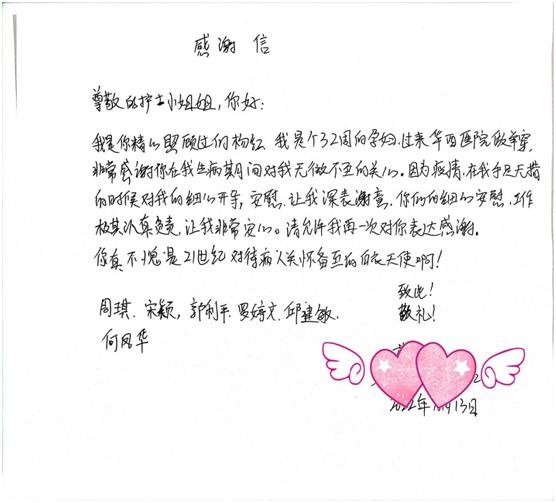 感谢信
尊敬的护士小姐姐，你好：
我是你精心照顾过的杨红，我是个32周的孕妇，过来华西医院做单穿，
非常感谢你在我生病期间对我无微不至的关心。因为疫情，在我手足无措
的时候对我的细心开导，安慰，让我深表谢意，你们的细心安慰，工作
极其认真负责，让我非常安心。请允许我再一次对你表达感谢。
你真不愧是21世纪对待病人关怀备至的白衣天使啊！
周琪，宋颖，郭利平，罗婷文，邱建敏，
何凤华
致此！
敬礼！
2022年 月13日